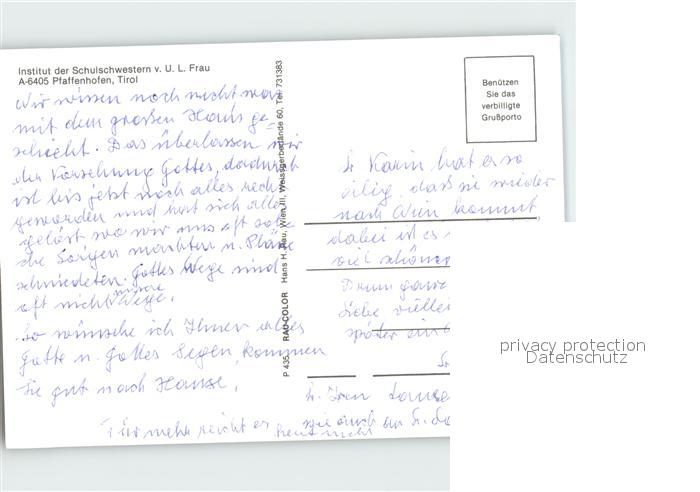 Institut der Schulschwestern v. U. L. Frau
A-6405 Pfaffenhofen, Tirol
Wir wissen noch nicht was
mit dem großen Haus ge-
schieht. Das überlassen wir
der Vorsehung Gottes, dadurch
ist bis jetzt noch alles recht
geworden und hat sich alles
gelöst wo wir uns oft sol
che Sorgen machten u. Pläne
schmiedeten. Gottes Wege sind
oft nicht unsere Wege.
So wünsche ich Ihnen alles
Gute u. Gottes Segen, kommen
Sie gut nach Hause,
Für mehr reicht es heut nicht
P 435 RAU-COLOR Hans H. Rau, Wien III, Weissgerberlände 60, Tel. 731383
Benützen
Sie das
verbilligte
Grußporto
Sr. Karin hat es so
eilig, daß sie wieder
nach Wien kommt,
dabei ist es
viel schöner
Drum ganz
liebe
später
Sr.
wie auch an Sr.
privacy protection
Datenschutz